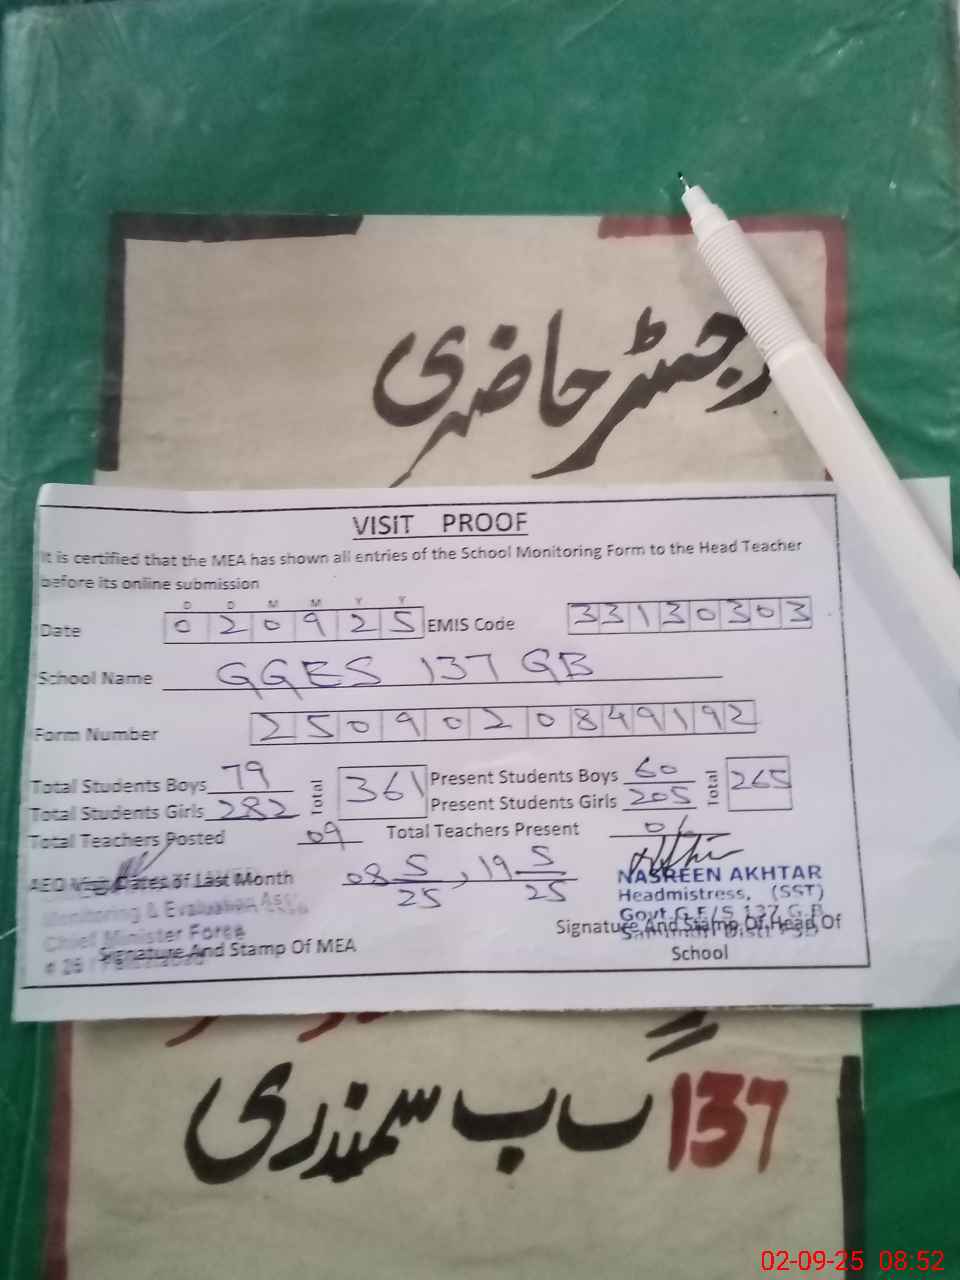 رجسٹر حاضری
VISIT PROOF
It is certified that the MEA has shown all entries of the School Monitoring Form to the Head Teacher
before its online submission
D D M M Y Y
Date 020925 EMIS Code 33130303
School Name GGES 137 GB
Form Number 2509020849192
Total Students Boys 79 Total 361 Present Students Boys 60 Total 265
Total Students Girls 282 Present Students Girls 205
Total Teachers Posted 09 Total Teachers Present
AEO Visit Dates of Last Month 08 5/25, 19 5/25
NASREEN AKHTAR
Headmistress, (SST)
Govt. G.E/S 137 G.B
Monitoring & Evaluation
Chief Minister Force
Signature And Stamp Of MEA
Signature And Stamp Of Head Of
School
137 گ ب سمندری
02-09-25 08:52